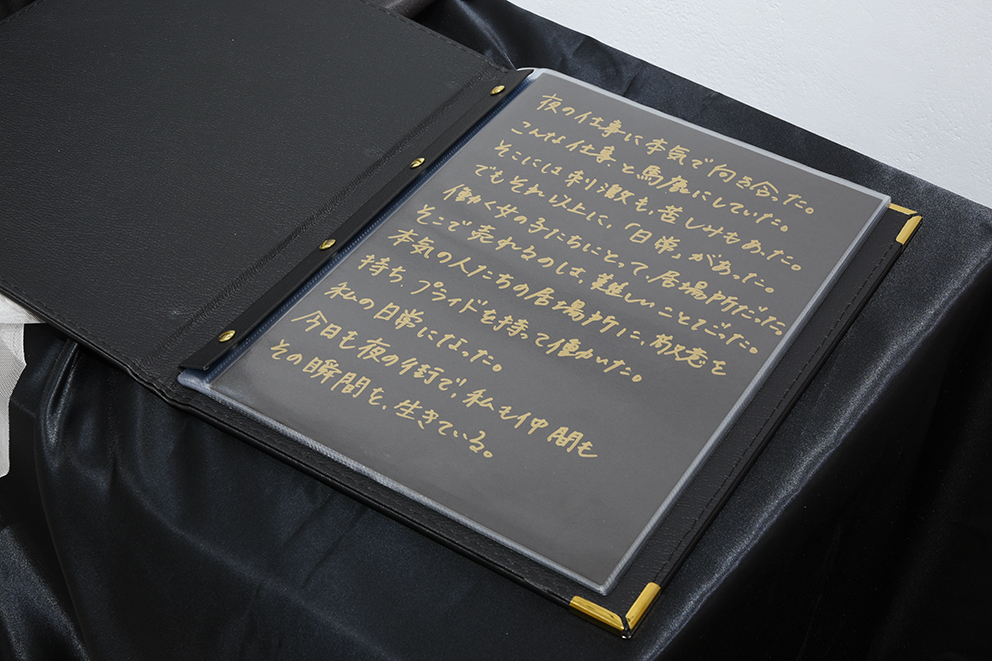 夜の仕事に本気で向き合った。
こんな仕事、と馬鹿にしていた。
そこには刺激も、苦しみもあった。
でもそれ以上に、「日常」があった。
働く女の子たちにとって居場所だった。
そこで売れるのは、難しいことだった。
本気の人たちの居場所に、敬意を
持ち、プライドを持って働いた。
私の日常になった。
今日も夜の街で、私も仲間も
その瞬間を、生きている。